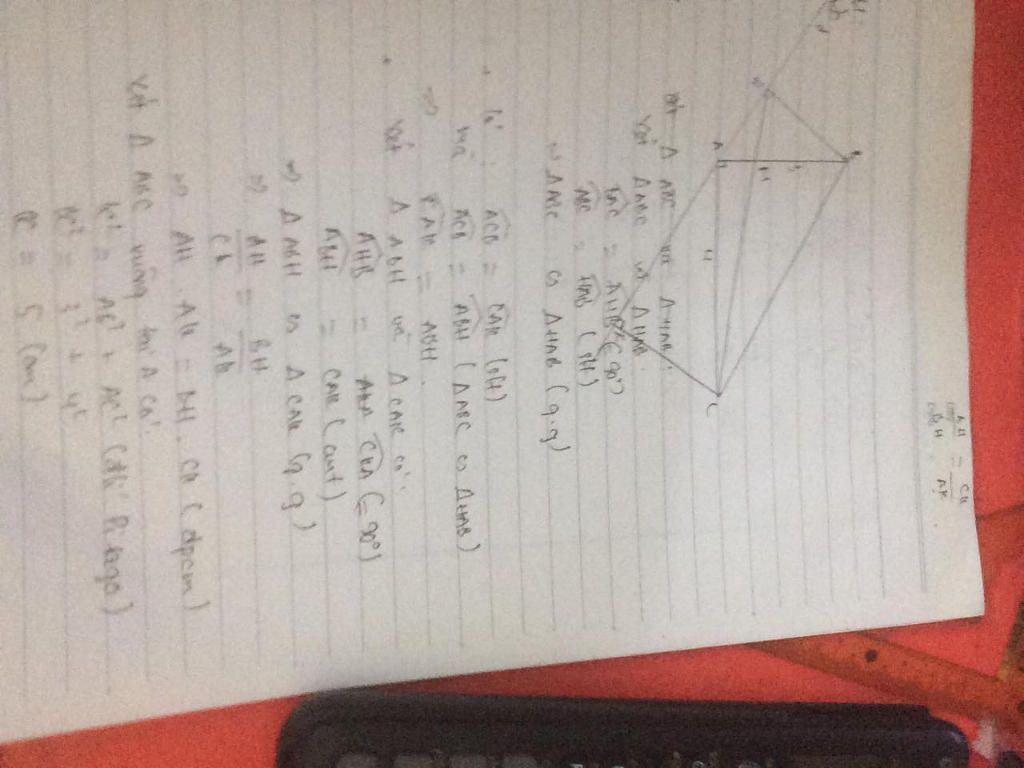 AH / BH = CK / AK
B
3
A
H
4
C
Xét Δ ABC và Δ HAB:
Xét Δ ABC và Δ HAB:
BAC = AHB (= 90°)
ABC = HAB (slt)
⇒ Δ ABC ∽ Δ HAB (g.g)
Có: ACB = CAK (slt)
mà ACB = ABH (Δ ABC ∽ Δ HAB)
⇒ CAK = ABH.
Xét Δ ABH và Δ CAK có:
AHB = CKA (= 90°)
ABH = CAK (cmt)
⇒ Δ ABH ∽ Δ CAK (g.g)
⇒ AH / CK = BH / AK
⇒ AH . AK = BH . CK (đpcm)
Xét Δ ABC vuông tại A có:
BC² = AB² + AC² (đlí Pitago)
BC² = 3² + 4²
BC = 5 (cm)